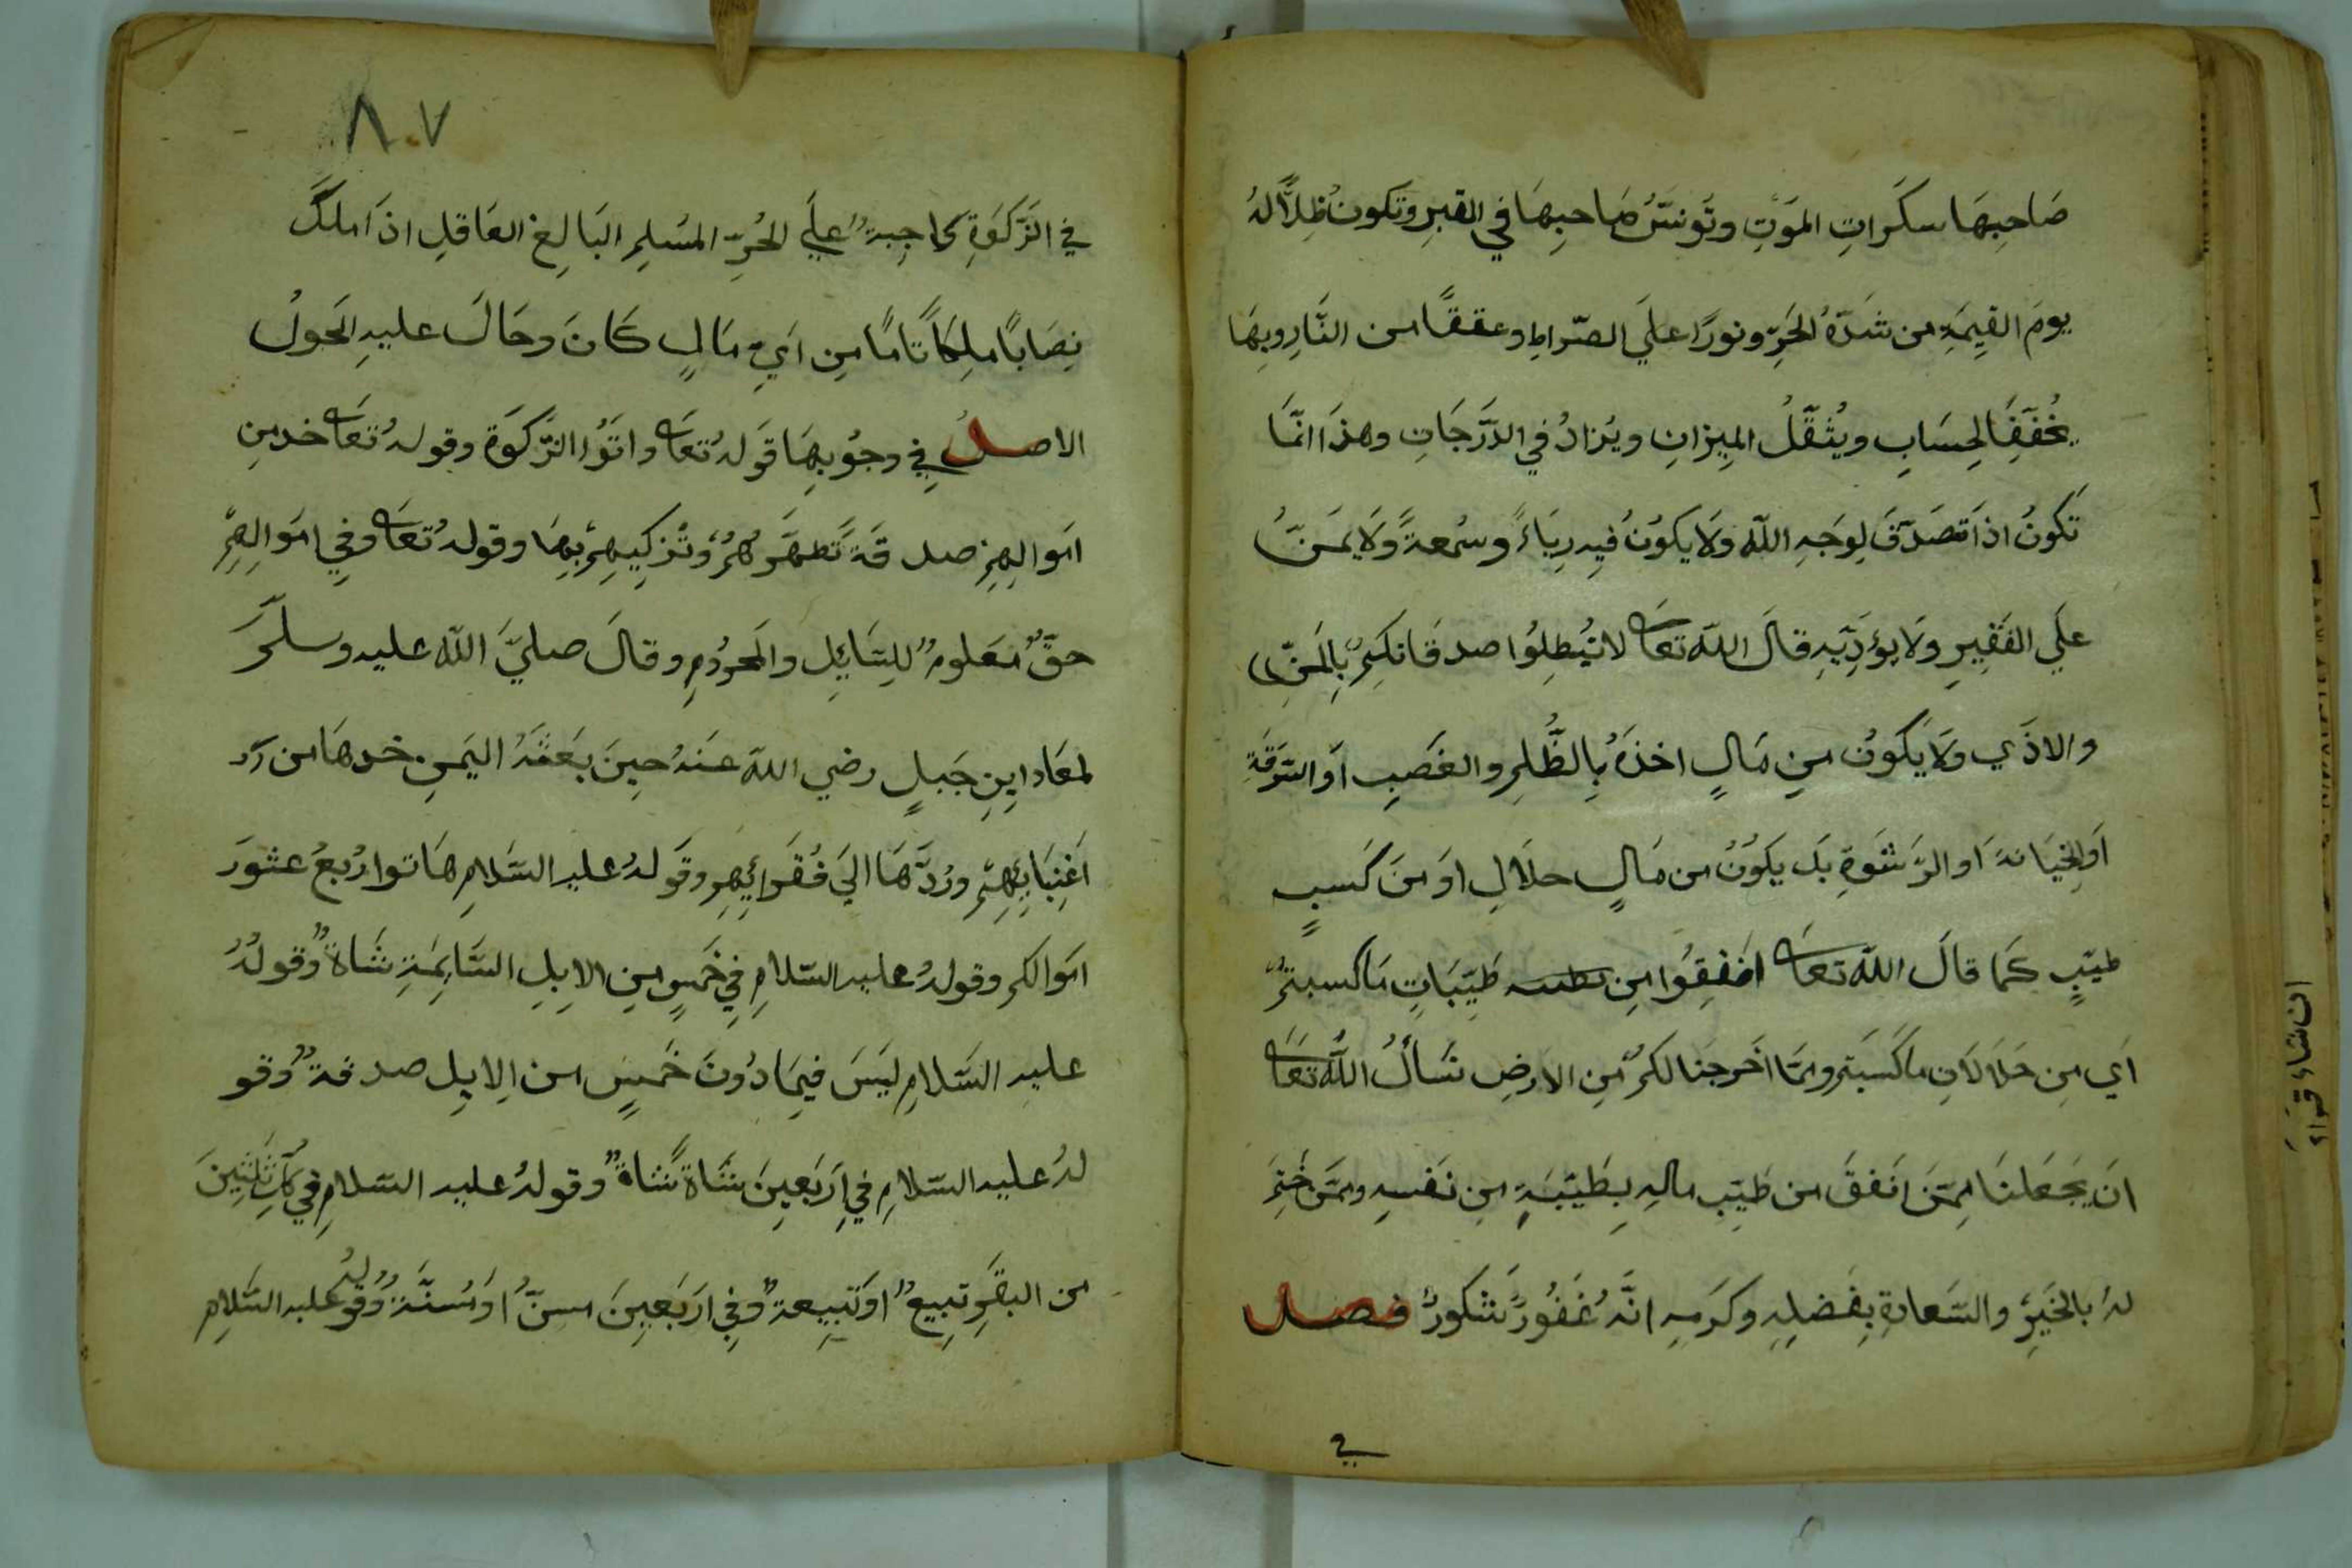 صَاحِبِهَا سكَرَاتِ المَوَتِ وتُونسُ صَاحبِهَا في القبرِ وتكونُ ظِلاًّ لهُ
يومَ القيِمَةِ من شدّةُ الحَرِّ ونورًا علَي الصّراطِ وعققًا من النَّارِ وبهَا
يُخفَّفَُ الحِسَابِ ويثُقَّلُ المِيزانِ ويُزادُ في الدَّرَجَاتِ وهذَا انّمَا
تَكونُ اذَا تصَدّقَ لِوَجَهِ اللّه وَلَا يكوُنُ فيِهِ رِيَاءً وسُمعةً وَلَا يمَنّ
علَي الفَقيِرِ ولَا يؤذِيّهِ قالَ اللّه تعَالى لا تُبُطِلوُا صدقَاتكِمُ بِالمَنِّ
والاذَي ولَا يَكوُن مِن مَالٍ اخذَهُ بِالظُّلِمِ والغَصَبِ اوَ السّرَقةِ
اوَ الخيَانةَ اوَ الرّشَوةِ بلَ يكوُنُ من مَالٍ حلَالِ اوَ منَ كَسبٍ
طيّبٍ كمَا قالَ اللّه تعَالى انفقِوُا مِن طَيّبَاتِ مَا كسبتمُ
اَي مِن حَلَالَاتِ ما كَسَبتم وممّا اَخرجنَا لكمُ مّنِ الارضِ نَسَألُ اللَّه تَعَالى
انَ يَجَعَلنَا مِمّنَ انَفقَ من طَيِّبِ مالهِ بِطَيّبَةٍ مِن نَفسهِ وممّن خَتِمَ
لهُ بالخَيِرَ والسّعادةِ بِفَضلِهِ وكرَمهِ انَّهُ غفُورٌ شكورٌ فصل
في
٨٠٧
في الزّكوَةِ واجِبةٌ علَي الحُرِّ المسُلِمِ البَالغِ العَاقلِ اذَا ملَكَ
نِصَابًا ملِكَاً تامًا مِن اَيِّ مَالٍ كَانَ وحَالَ عليهِ الحَولُ
الاصلُ في وجُوبهَا قَولهُ تعَالى واتَوُا الزّكوَة وقولهُ تعَالى خد مِن
امَوالِهِمِ صدقَةً تَطهّرَهُمُ وَتُزكِيهِمُ بهِا وقولهُ تعَالى وفِي امَوالِهِمِ
حقٌّ مَعَلومٌ للِسّائِلِ والمَحرُومِ وقالَ صليَّ اللّه عليه وسلّمَ
لمعَاد ابِنِ جَبلٍ رضي اللّه عَنهُ حيِنَ بعَثهُ اليَمنِ خدهَا من
اَغِنيَايِهِمِ ورُدَّهَا اليَ فُقَرائِهِم وقَولهُ عليه السّلامِ هَاتوا رُبعُ عشورَ
امَوالكم وقولهُ عليه السّلامِ فِي خَمَسٍ مِنِ الاِبِلِ السَّايِمَةِ شَاةٌ وقولهُ
عليهِ السَّلامِ ليَسَ فيِمَا دُونَ خَمَسٍ من الِابِل صدقةٌ وقو
لهُ عليه السّلامِ في اَرَبَعيِنَ شَاةً شَاةٌ وقولهُ عليه السّلامِ في كلِّ ثلثيِنَ
من البقَرِ تَبِيعٌ اوَ تَبِيعةٌ وفِي ارَبَعِينَ مسِنّ اوَ مُسنّةٌ وقولهُ عليه السّلامِ
ان شاء